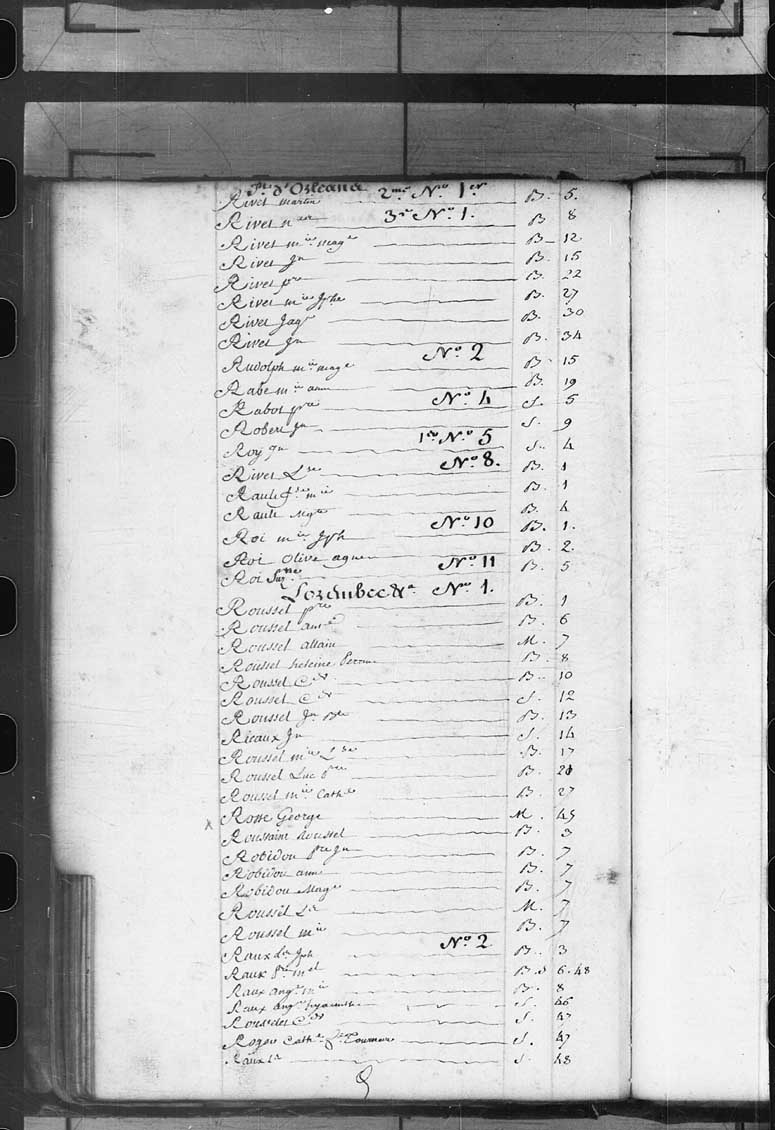 Pte d'Orleans 2me No 1er
Rivet martin B. 5.
3e No 1.
Rivet B 8
Rivet mie mage B 12
Rivet Jn B. 15
Rivet pre B. 22
Rivet mie Jphe B. 27
Rivet Jaqs B. 30
Rivet Jn B. 34
No 2
Rudolph mie mage B. 15
Rabe mie ann B. 19
No 4
Rabot pre S. 5
Robert Jn S. 9
1er No 5
Roy Jn S. 4
No 8.
Rivet Lse B. 1
Rault fse mie B. 1
Rault Mgte B. 4
No 10
Roi mie Jph B. 1.
Roi Olive agnes B. 2.
No 11
Roi Suzne B. 5
Lorembec &a No 1.
Roussel pre B. 1
Roussel B. 6
Roussel allain M. 7
Roussel heleine Peronne B. 8
Roussel B. 10
Roussel S. 12
Roussel Jn Bte B. 13
Rleaux Jn S. 14
Roussel mie Lse B. 17
Roussel Luc pre B. 20
Roussel mie Cathe B. 27
x Rosse George M. 45
Roussaint Roussel B. 3
Robidou pre Jn B. 7
Robidou anne B. 7
Robidou Mage B. 7
Roussel Ls M. 7
Roussel mie B. 7
No 2
Raux Ls Jph B. 3
Raux frs mel B. S 6. 48
Raux angte mie B. 8
Raux angte hyacinthe S. 46
S. 47
Roger Cathe S. 47
Raux S. 48